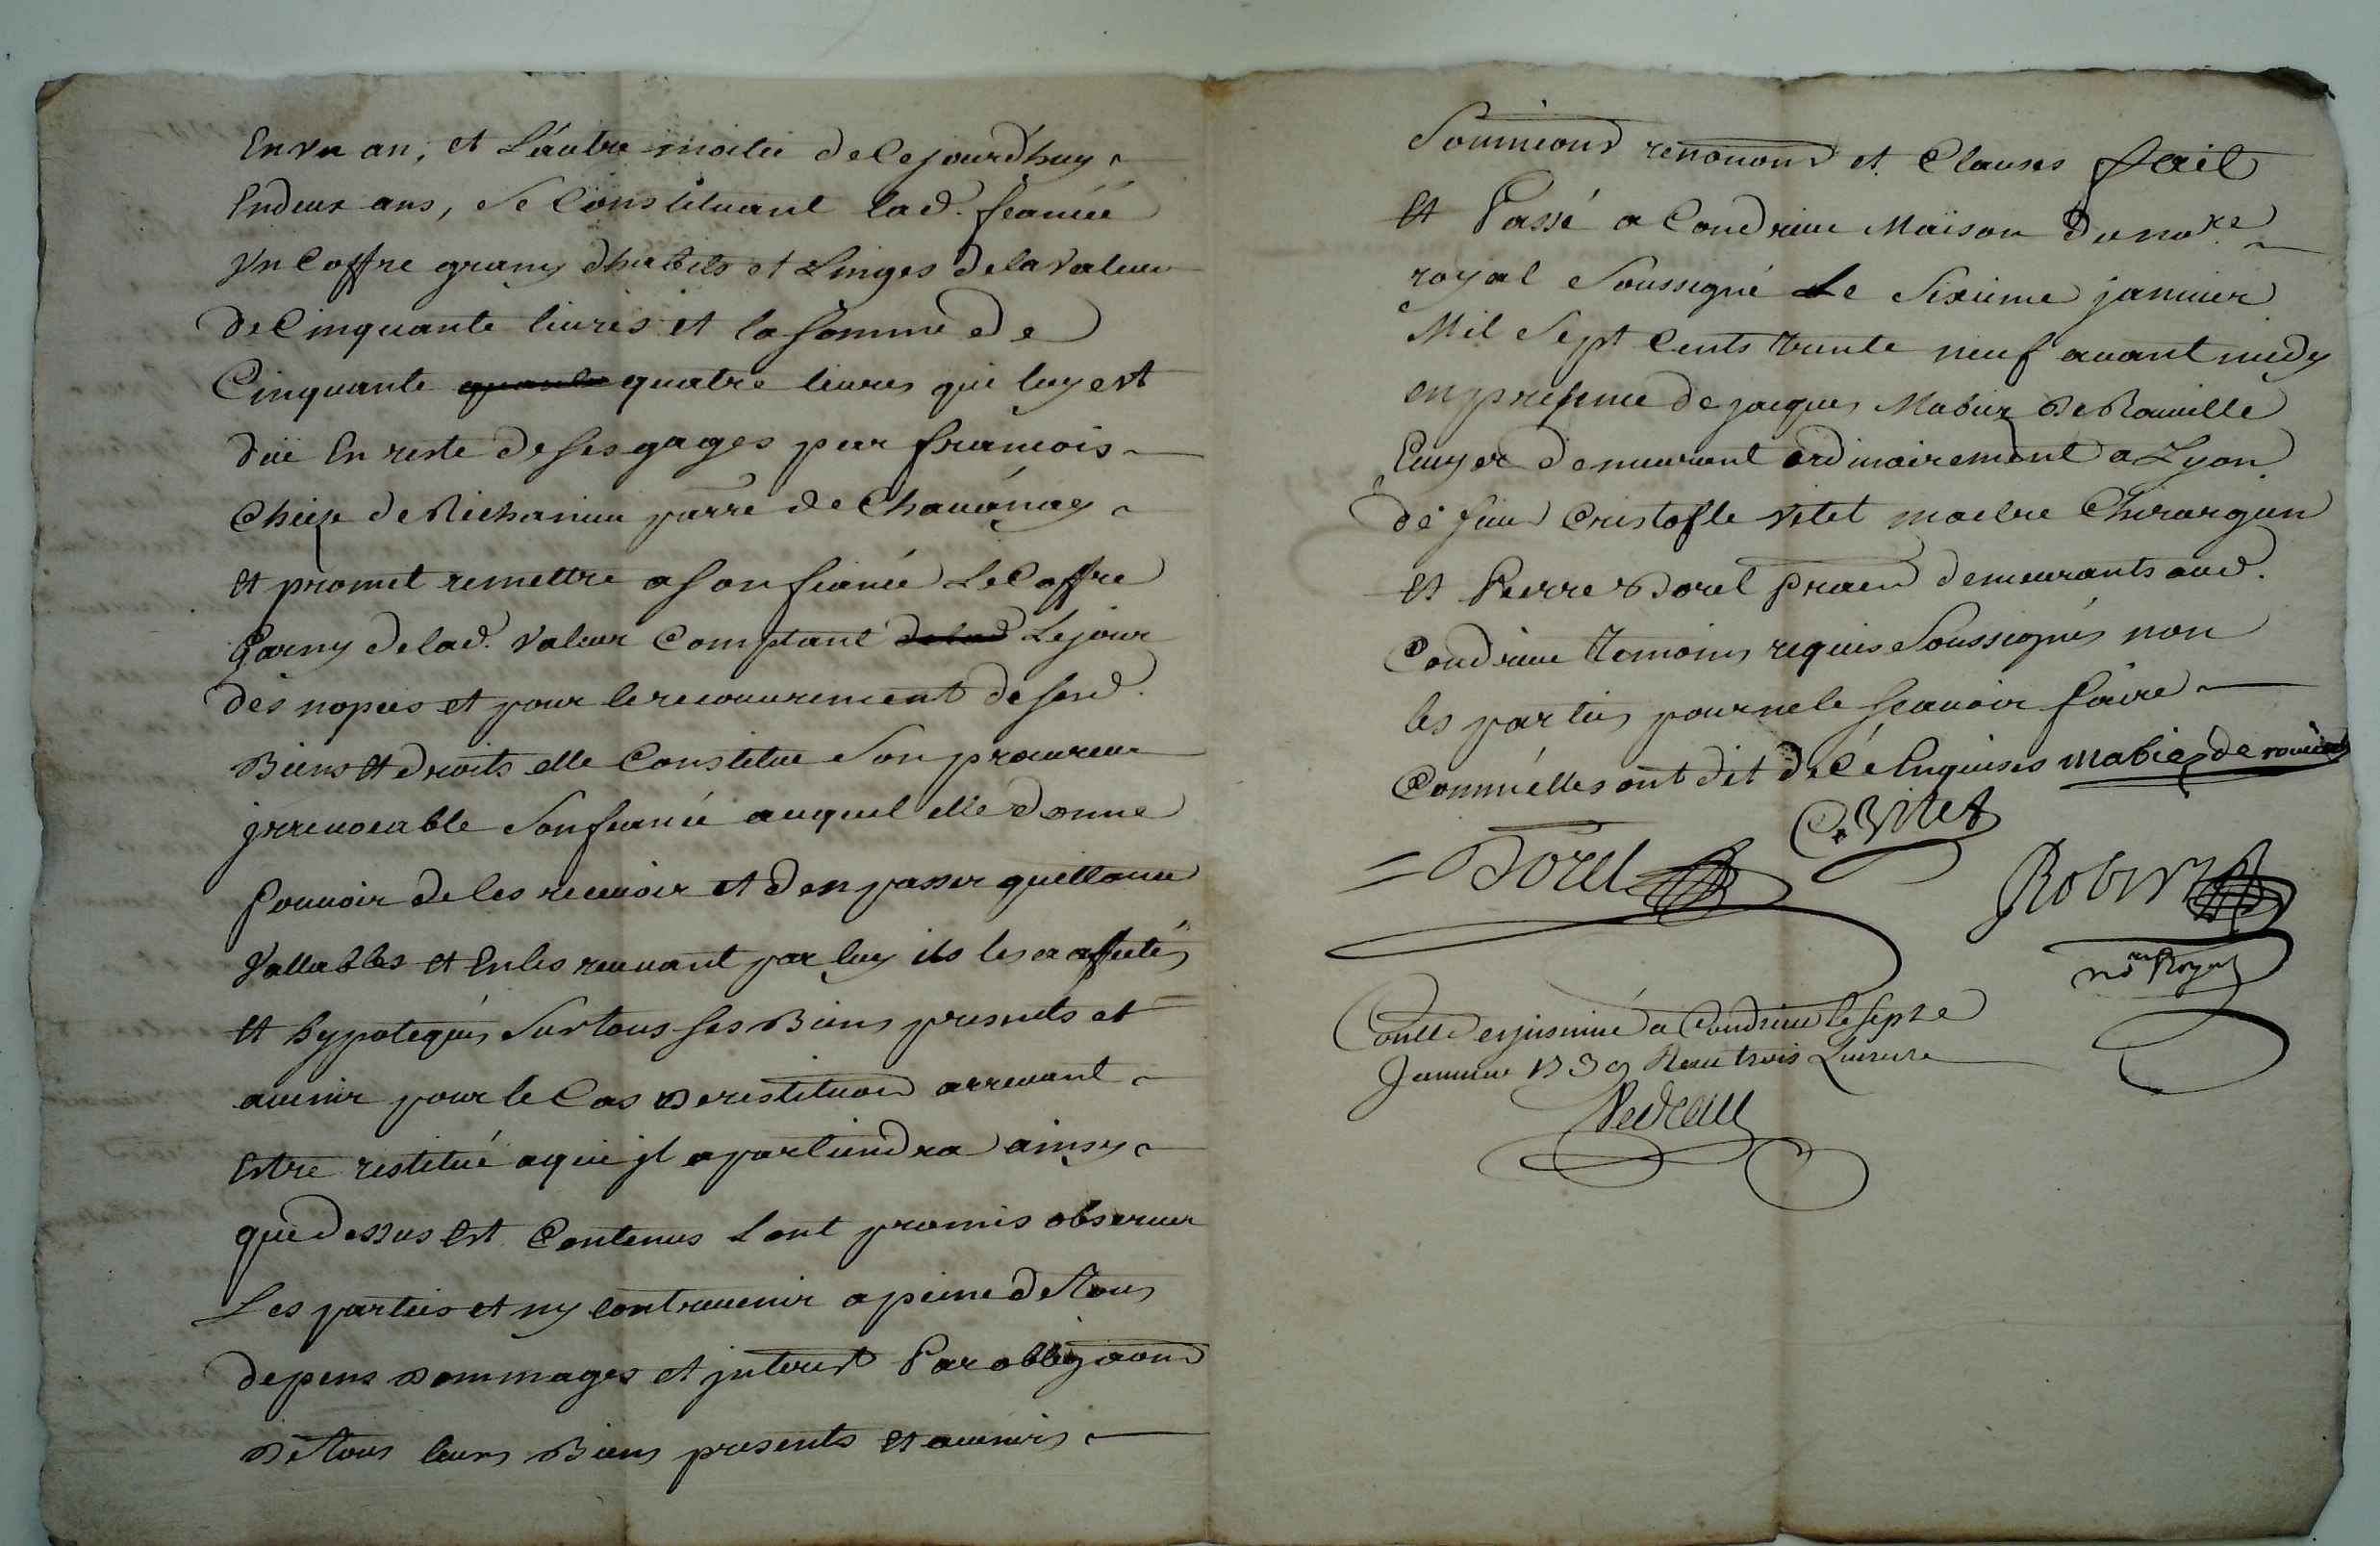 En vn an, et L'autre moitié de Cejourd'huy
En deux ans, se Constituant lad. fiancéé
Vn Coffre grany d'habits et Linges de la Valeur
de Cinquante liures et la somme de
Cinquante quatre liures qui luy est
düe En reste de ses gages par francois
Chieze de Richanieu parre de Chauanay
Et promet remettre a son fiancé Le Coffre
Garny de lad. Valeur Comptant Le jour
des nopces et pour le recouurement de sesd.
Biens et droits elle Constitue Son procureur
jrreuocable Son fiancé auquel elle donne
Pouuoir de les receuoir et d'en passer quittance
Vallables et En les receuant par luy ils les a affectés
Et hypotequés Sur tous ses Biens presents et
auenir pour le Cas De restituon arreuant
Estre restitué a qui jl apartiendra ainsy
que dessus Est Contenus Lont promis obseruer
Les parties et ny contreuenir a peine de Tous
depens Dommages et jnterest Par obligaons
De Tous leurs Biens presents Et auenirs
Soumions renonons et Clauses fait
Et Passé a Condrieu Maison du nore
royal Soussigné Le Sixieme januier
Mil Sept Cents trente neuf auant midy
en presence de jacques Mabiez De Rouuille
Ecuyer demeurant ordinairement a Lyon
de sieur Cristofle Vitet maitre Chirurgien
Et Pierre Borel praen demeurants aud.
Condrieu Temoins requis Soussignés non
les parties pour ne le scauoir faire
Comme elles ont dit de Cé Enquises Mabiez de rouuille
C. Vitet
Borel
Robin
nore Royal
Conllé et jnsinué a Condrieu le sept
Januier 1739 Receu trois Liures